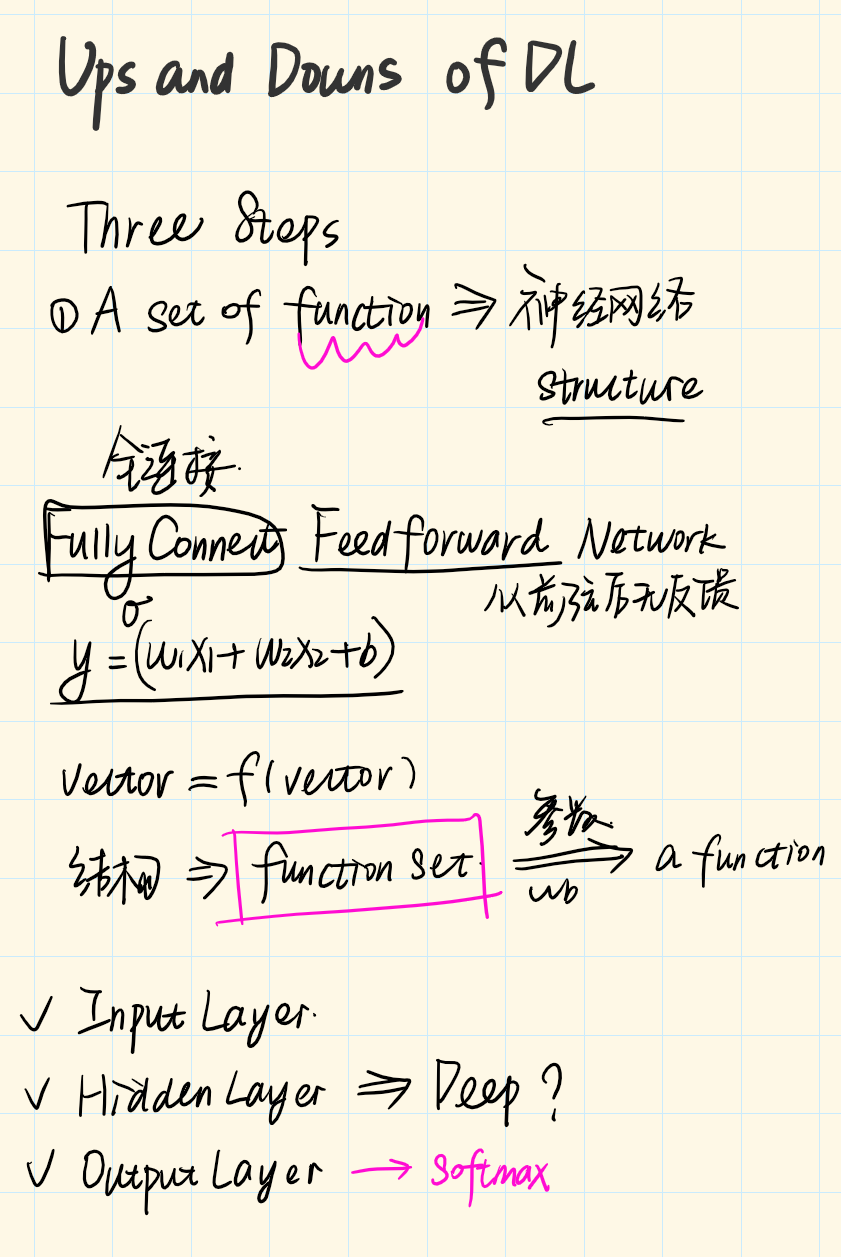 Ups and Downs of DL
Three Steps
① A set of function ⇒ 神经网络
structure
全连接
Fully Connect Feedforward Network
从前到后无反馈
σ
y = (w₁x₁ + w₂x₂ + b)
vector = f(vector)
参数
结构 ⇒ function set ⇒ a function
wb
✓ Input Layer.
✓ Hidden Layer ⇒ Deep?
✓ Output Layer → Softmax